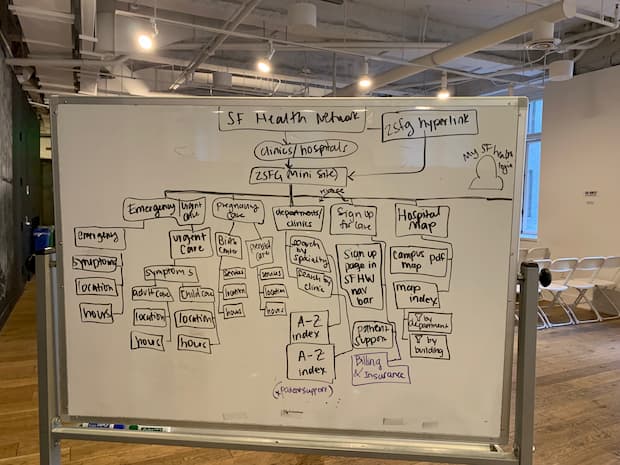 SF Health Network
zsfg hyperlink
clinics/hospitals
ZSFG (Mini Site)
My SF health
login
Emergency
urgent
care
pregnancy
care
departments/
clinics
Sign up
for care
Hospital
Map
emergency
symptoms
location
hours
urgent
care
symptoms
adult care
child care
location
location
hours
hours
Birth
center
services
location
hours
prenatal
care
services
location
hours
search
by
specialty
search by
clinic
A-Z
index
A-Z
index
(*patient support)
Sign up
page in
SFHN
nav
bar
patient
support
Billing
& Insurance
campus pdf
map
map
index
by
department
by
building